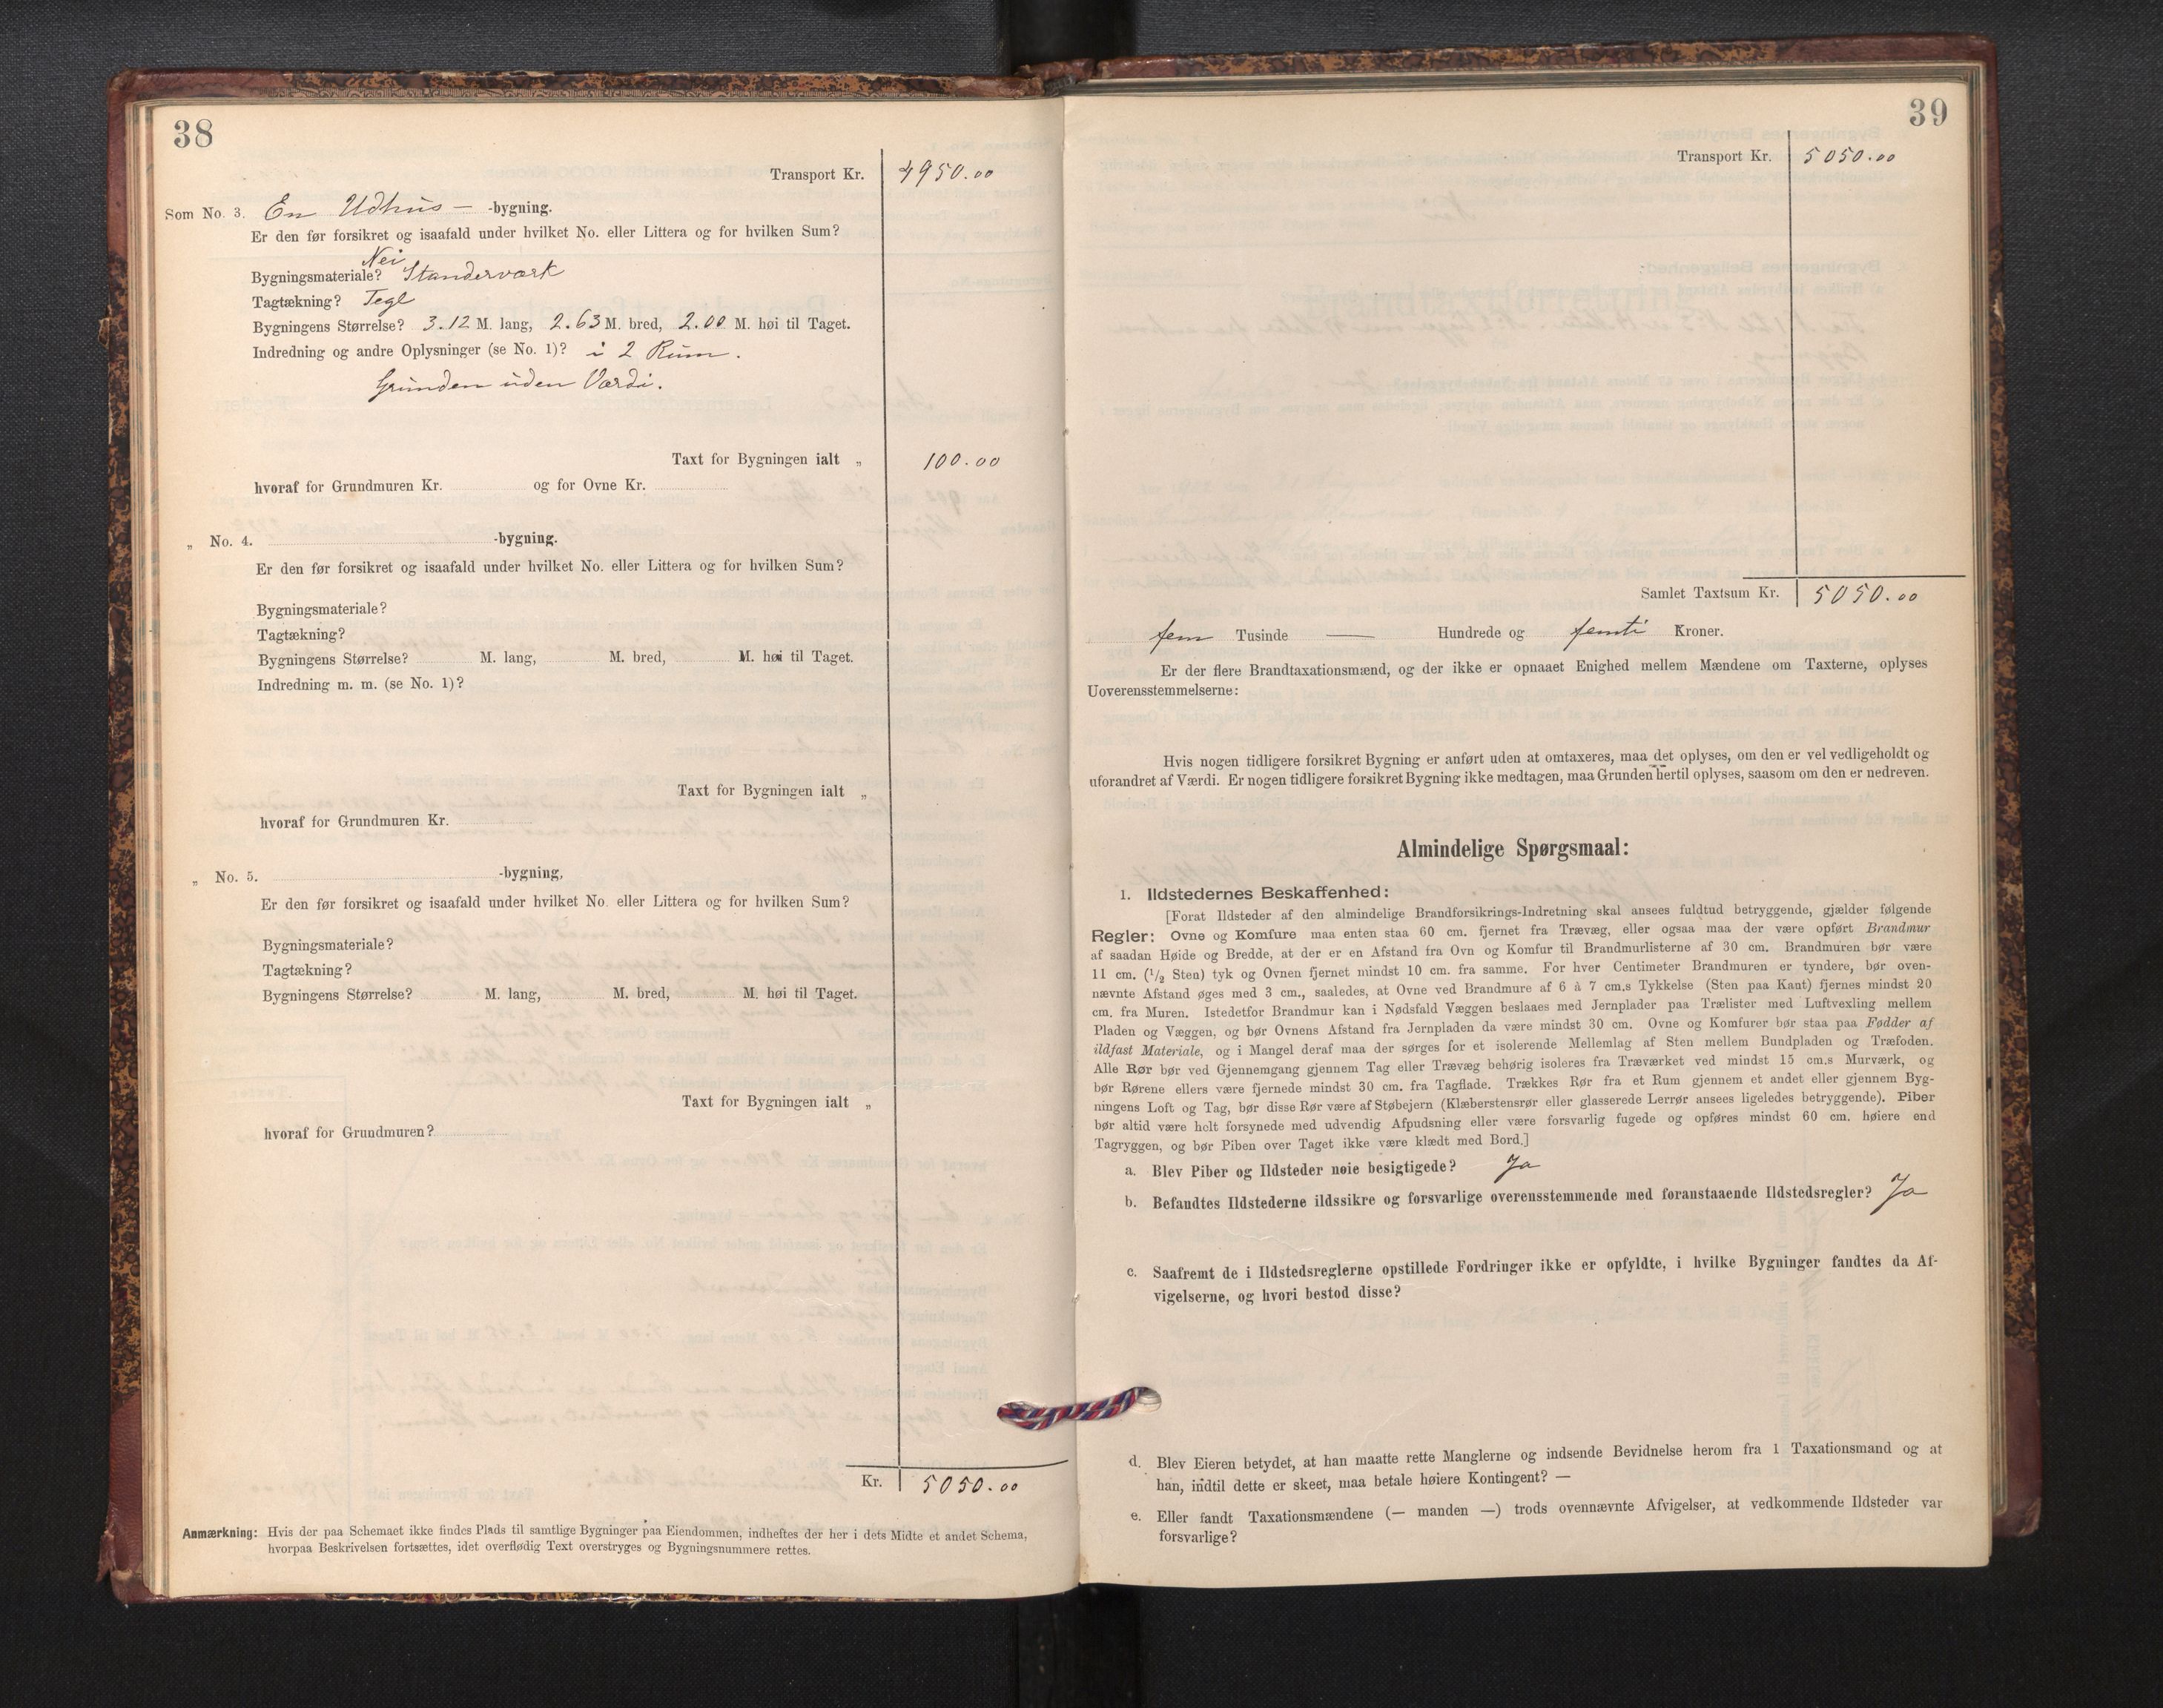 38
Transport Kr. 4950.00
Som No. 3. En Udhus — -bygning.
Er den før forsikret og isaafald under hvilket No. eller Littera og for hvilken Sum?
Nei
Bygningsmateriale? Standerværk
Tagtækning? Tegl
Bygningens Størrelse? 3.12 M. lang, 2.63 M. bred, 2.00 M. høi til Taget.
Indredning og andre Oplysninger (se No. 1)? i 2 Rum.
Grunden uden Værdi.
Taxt for Bygningen ialt „ 100.00
hvoraf for Grundmuren Kr. og for Ovne Kr.
„ No. 4. -bygning.
Er den før forsikret og isaafald under hvilket No. eller Littera og for hvilken Sum?
Bygningsmateriale?
Tagtækning?
Bygningens Størrelse? M. lang, M. bred, M. høi til Taget.
Indredning m. m. (se No. 1)?
Taxt for Bygningen ialt „
hvoraf for Grundmuren Kr.
„ No. 5. -bygning,
Er den før forsikret og isaafald under hvilket No. eller Littera og for hvilken Sum?
Bygningsmateriale?
Tagtækning?
Bygningens Størrelse? M. lang, M. bred, M. høi til Taget.
Taxt for Bygningen ialt „
hvoraf for Grundmuren?
Kr. 5050.00
Anmærkning: Hvis der paa Schemaet ikke findes Plads til samtlige Bygninger paa Eiendommen, indheftes der her i dets Midte et andet Schema,
hvorpaa Beskrivelsen fortsættes, idet overflødig Text overstryges og Bygningsnummere rettes.
39
Transport Kr. 5050.00
Samlet Taxtsum Kr. 5050.00
fem Tusinde — Hundrede og femti Kroner.
Er der flere Brandtaxationsmænd, og der ikke er opnaaet Enighed mellem Mændene om Taxterne, oplyses
Uoverensstemmelserne:
Hvis nogen tidligere forsikret Bygning er anført uden at omtaxeres, maa det oplyses, om den er vel vedligeholdt og
uforandret af Værdi. Er nogen tidligere forsikret Bygning ikke medtagen, maa Grunden hertil oplyses, saasom om den er nedreven.
Almindelige Spørgsmaal:
1. Ildstedernes Beskaffenhed:
[Forat Ildsteder af den almindelige Brandforsikrings-Indretning skal ansees fuldtud betryggende, gjælder følgende
Regler: Ovne og Komfure maa enten staa 60 cm. fjernet fra Trævæg, eller ogsaa maa der være opført Brandmur
af saadan Høide og Bredde, at der er en Afstand fra Ovn og Komfur til Brandmurlisterne af 30 cm. Brandmuren bør være
11 cm. (1/2 Sten) tyk og Ovnen fjernet mindst 10 cm. fra samme. For hver Centimeter Brandmuren er tyndere, bør oven-
nævnte Afstand øges med 3 cm., saaledes, at Ovne ved Brandmure af 6 à 7 cm.s Tykkelse (Sten paa Kant) fjernes mindst 20
cm. fra Muren. Istedetfor Brandmur kan i Nødsfald Væggen beslaaes med Jernplader paa Trælister med Luftvexling mellem
Pladen og Væggen, og bør Ovnens Afstand fra Jernpladen da være mindst 30 cm. Ovne og Komfurer bør staa paa Fødder af
ildfast Materiale, og i Mangel deraf maa der sørges for et isolerende Mellemlag af Sten mellem Bundpladen og Træfoden.
Alle Rør bør ved Gjennemgang gjennem Tag eller Trævæg behørig isoleres fra Træværket ved mindst 15 cm.s Murværk, og
bør Rørene ellers være fjernede mindst 30 cm. fra Tagflade. Trækkes Rør fra et Rum gjennem et andet eller gjennem Byg-
ningens Loft og Tag, bør disse Rør være af Støbejern (Klæberstensrør eller glasserede Lerrør ansees ligeledes betryggende). Piber
bør altid være helt forsynede med udvendig Afpudsning eller være forsvarlig fugede og opføres mindst 60 cm. høiere end
Tagryggen, og bør Piben over Taget ikke være klædt med Bord.]
a. Blev Piber og Ildsteder nøie besigtigede? Ja
b. Befandtes Ildstederne ildssikre og forsvarlige overensstemmende med foranstaaende Ildstedsregler? Ja
c. Saafremt de i Ildstedsreglerne opstillede Fordringer ikke er opfyldte, i hvilke Bygninger fandtes da Af-
vigelserne, og hvori bestod disse?
d. Blev Eieren betydet, at han maatte rette Manglerne og indsende Bevidnelse herom fra 1 Taxationsmand og at
han, indtil dette er skeet, maa betale høiere Kontingent? —
e. Eller fandt Taxationsmændene (— manden —) trods ovennævnte Afvigelser, at vedkommende Ildsteder var
forsvarlige?